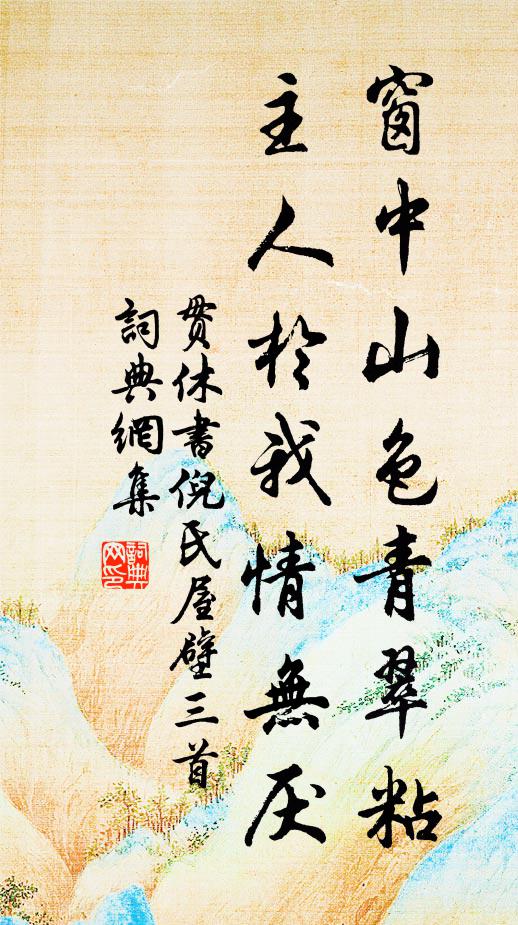 窗中山色青翠粘
主人於我情無厌
贯休書倪氏屋壁三首
詞典網集
詞典网印